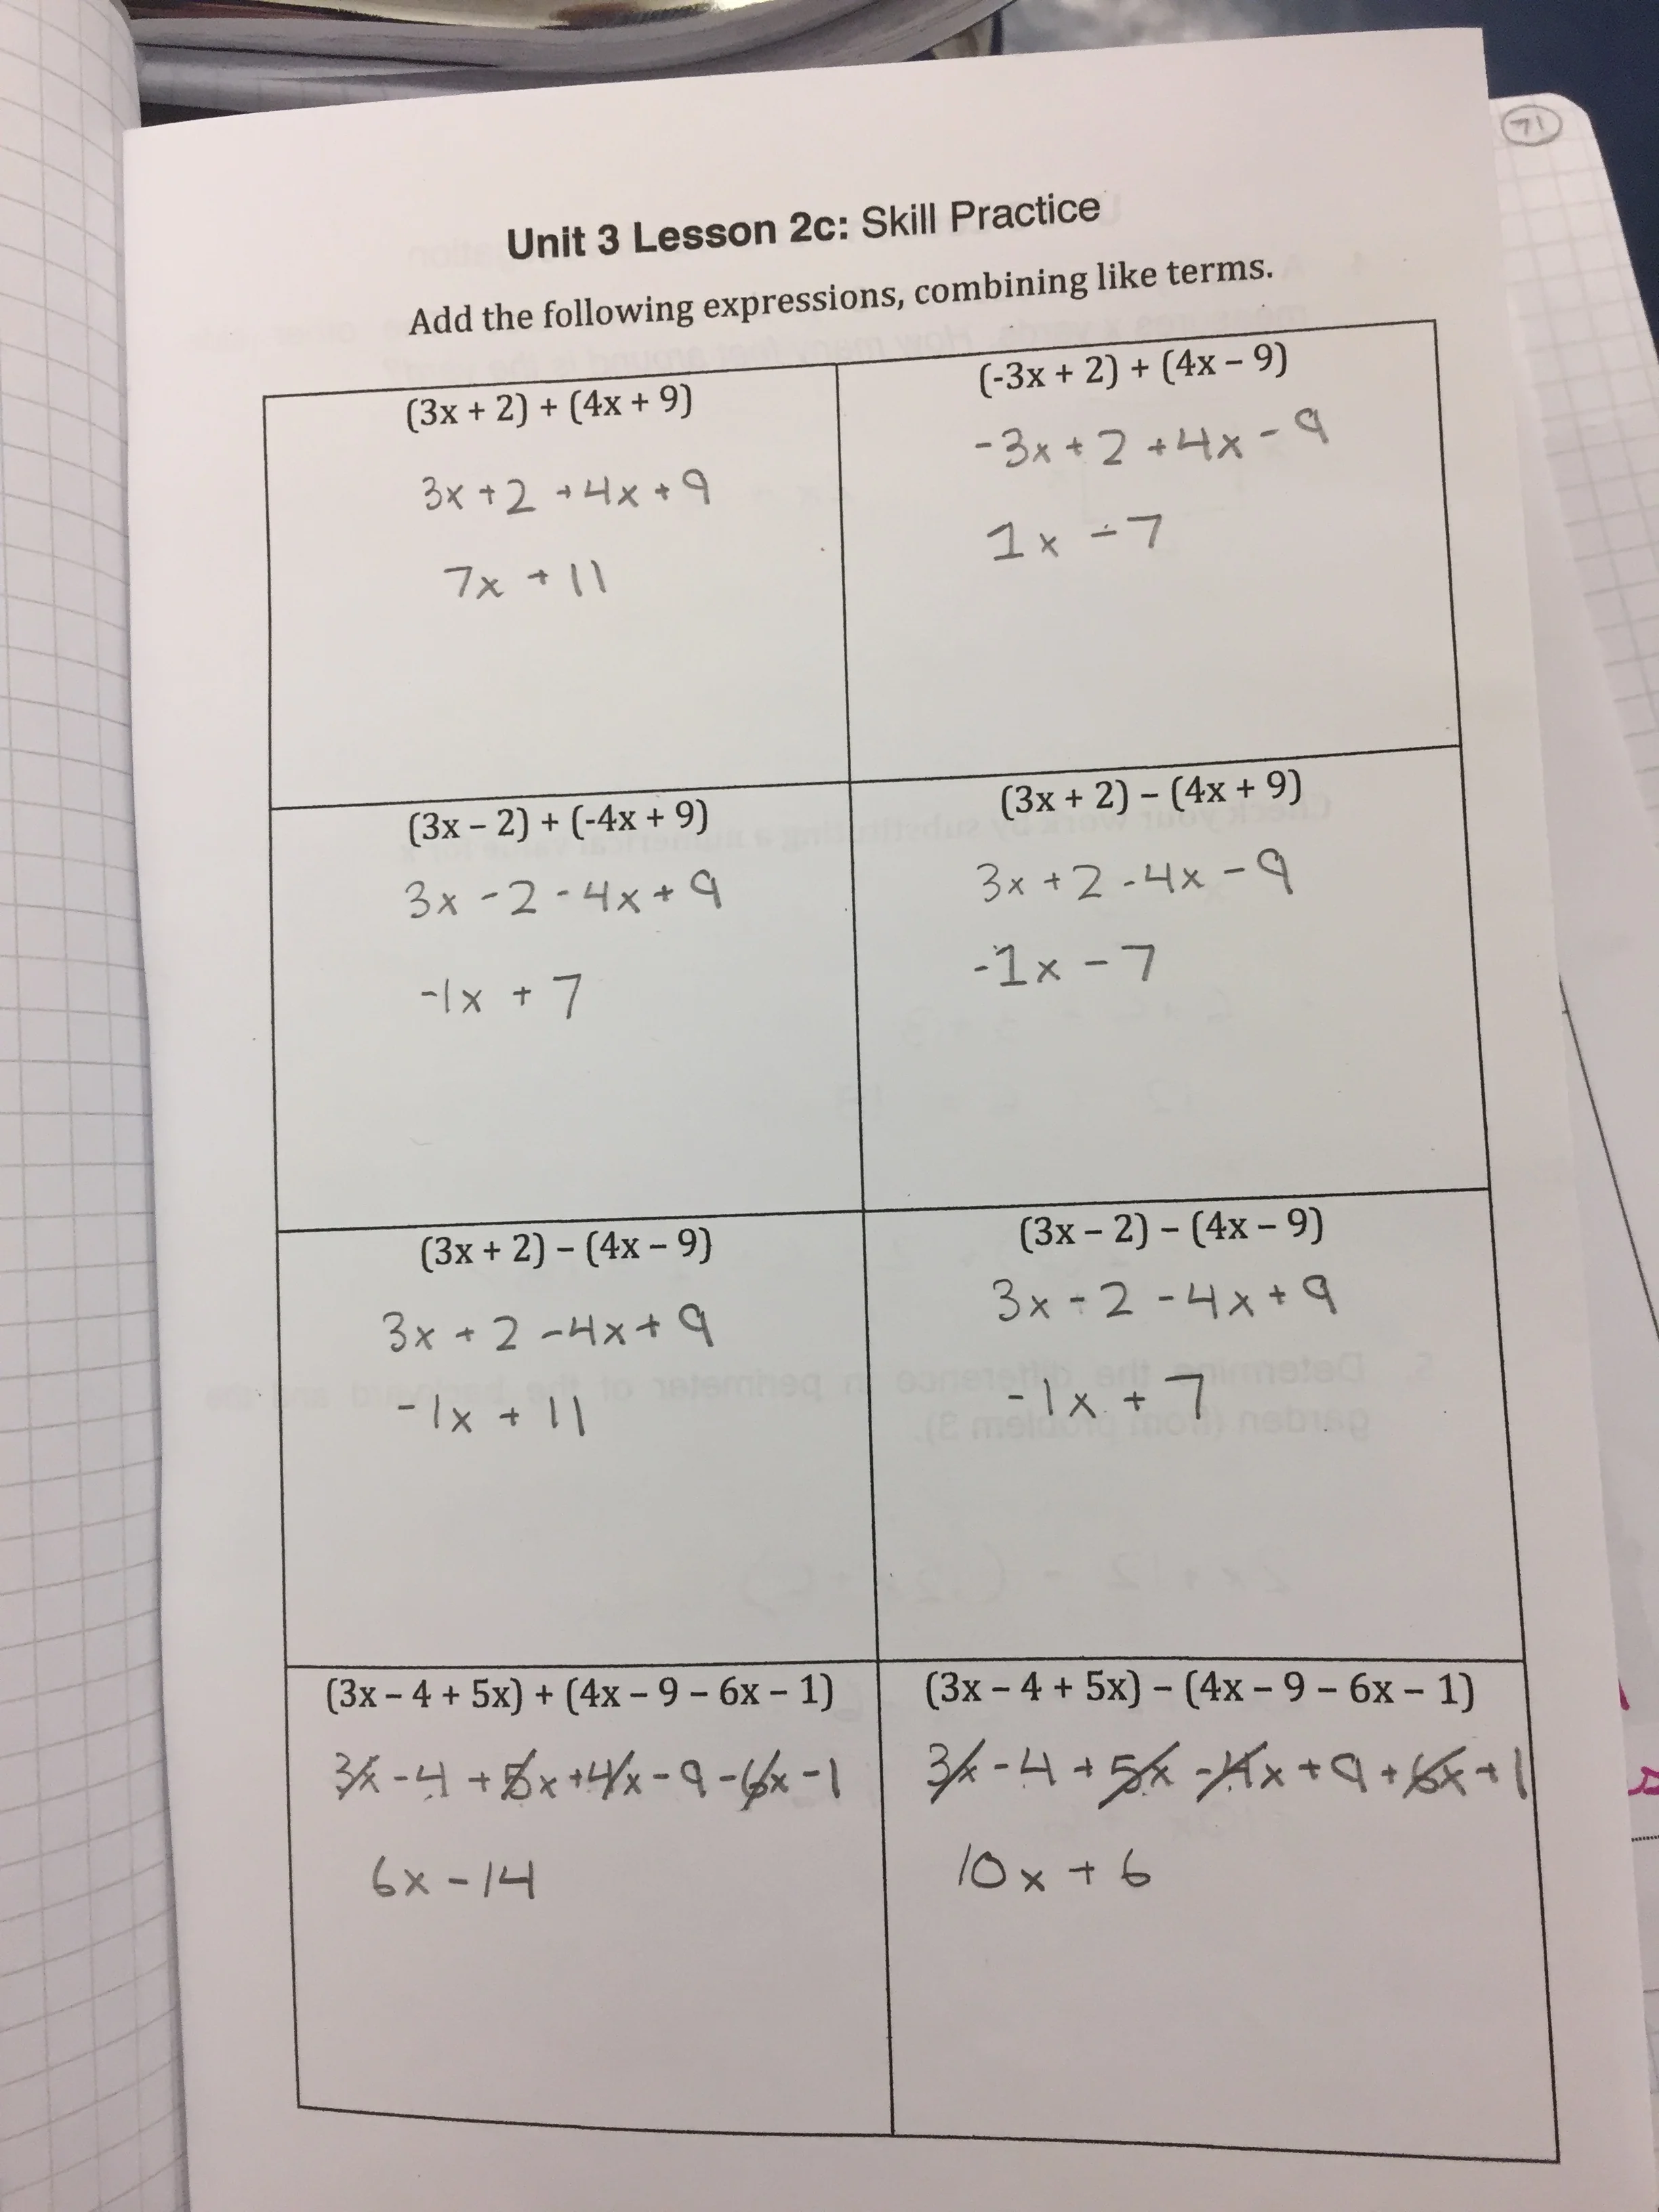 71
Unit 3 Lesson 2c: Skill Practice
Add the following expressions, combining like terms.
(3x + 2) + (4x + 9)
3x + 2 + 4x + 9
7x + 11
(-3x + 2) + (4x – 9)
-3x + 2 + 4x - 9
1x - 7
(3x – 2) + (-4x + 9)
3x - 2 - 4x + 9
-1x + 7
(3x + 2) – (4x + 9)
3x + 2 - 4x - 9
-1x - 7
(3x + 2) – (4x – 9)
3x + 2 - 4x + 9
-1x + 11
(3x – 2) – (4x – 9)
3x - 2 - 4x + 9
-1x + 7
(3x – 4 + 5x) + (4x – 9 – 6x – 1)
3x - 4 + 5x + 4x - 9 - 6x - 1
6x - 14
(3x – 4 + 5x) – (4x – 9 – 6x – 1)
3x - 4 + 5x - 4x + 9 + 6x + 1
10x + 6